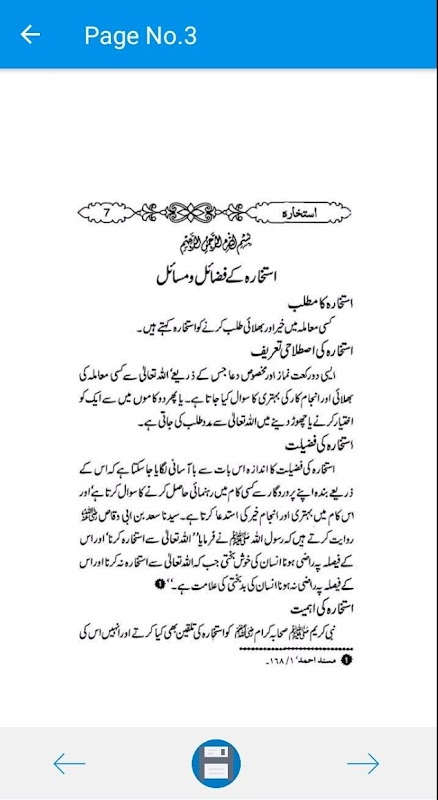 Page No.3
استخارہ
7
بسم اللہ الرحمن الرحیم
استخارہ کے فضائل و مسائل
استخارہ کا مطلب
کسی معاملہ میں خیر اور بھلائی طلب کرنے کو استخارہ کہتے ہیں۔
استخارہ کی اصطلاحی تعریف
ایسی دو رکعت نماز اور مخصوص دعا جس کے ذریعے اللہ تعالیٰ سے کسی معاملہ کی
بھلائی اور انجام کار کی بہتری کا سوال کیا جاتا ہے۔ یا پھر دو کاموں میں سے ایک کو
اختیار کرنے یا چھوڑ دینے میں اللہ تعالیٰ سے مدد طلب کی جاتی ہے۔
استخارہ کی فضیلت
استخارہ کی فضیلت کا اندازہ اس بات سے با آسانی لگایا جا سکتا ہے کہ اس کے
ذریعے بندہ اپنے پروردگار سے کسی کام میں رہنمائی حاصل کرنے کا سوال کرتا ہے' اور
اس کام میں بہتری اور انجام خیر کی استدعا کرتا ہے۔ سیدنا سعد بن ابی وقاص رضی اللہ عنہ
روایت کرتے ہیں کہ رسول اللہ ﷺ نے فرمایا "اللہ تعالیٰ سے استخارہ کرنا' اور اس
کے فیصلہ پہ راضی ہونا انسان کی خوش بختی جب کہ اللہ تعالیٰ سے استخارہ نہ کرنا اور اس
کے فیصلہ پہ راضی نہ ہونا انسان کی بدبختی کی علامت ہے۔" ❶
استخارہ کی اہمیت
نبی کریم ﷺ صحابہ کرام رضی اللہ عنہم کو استخارہ کی تلقین بھی کیا کرتے اور انہیں اس کی
❶ مسند احمد' ۱/۱۶۸۔